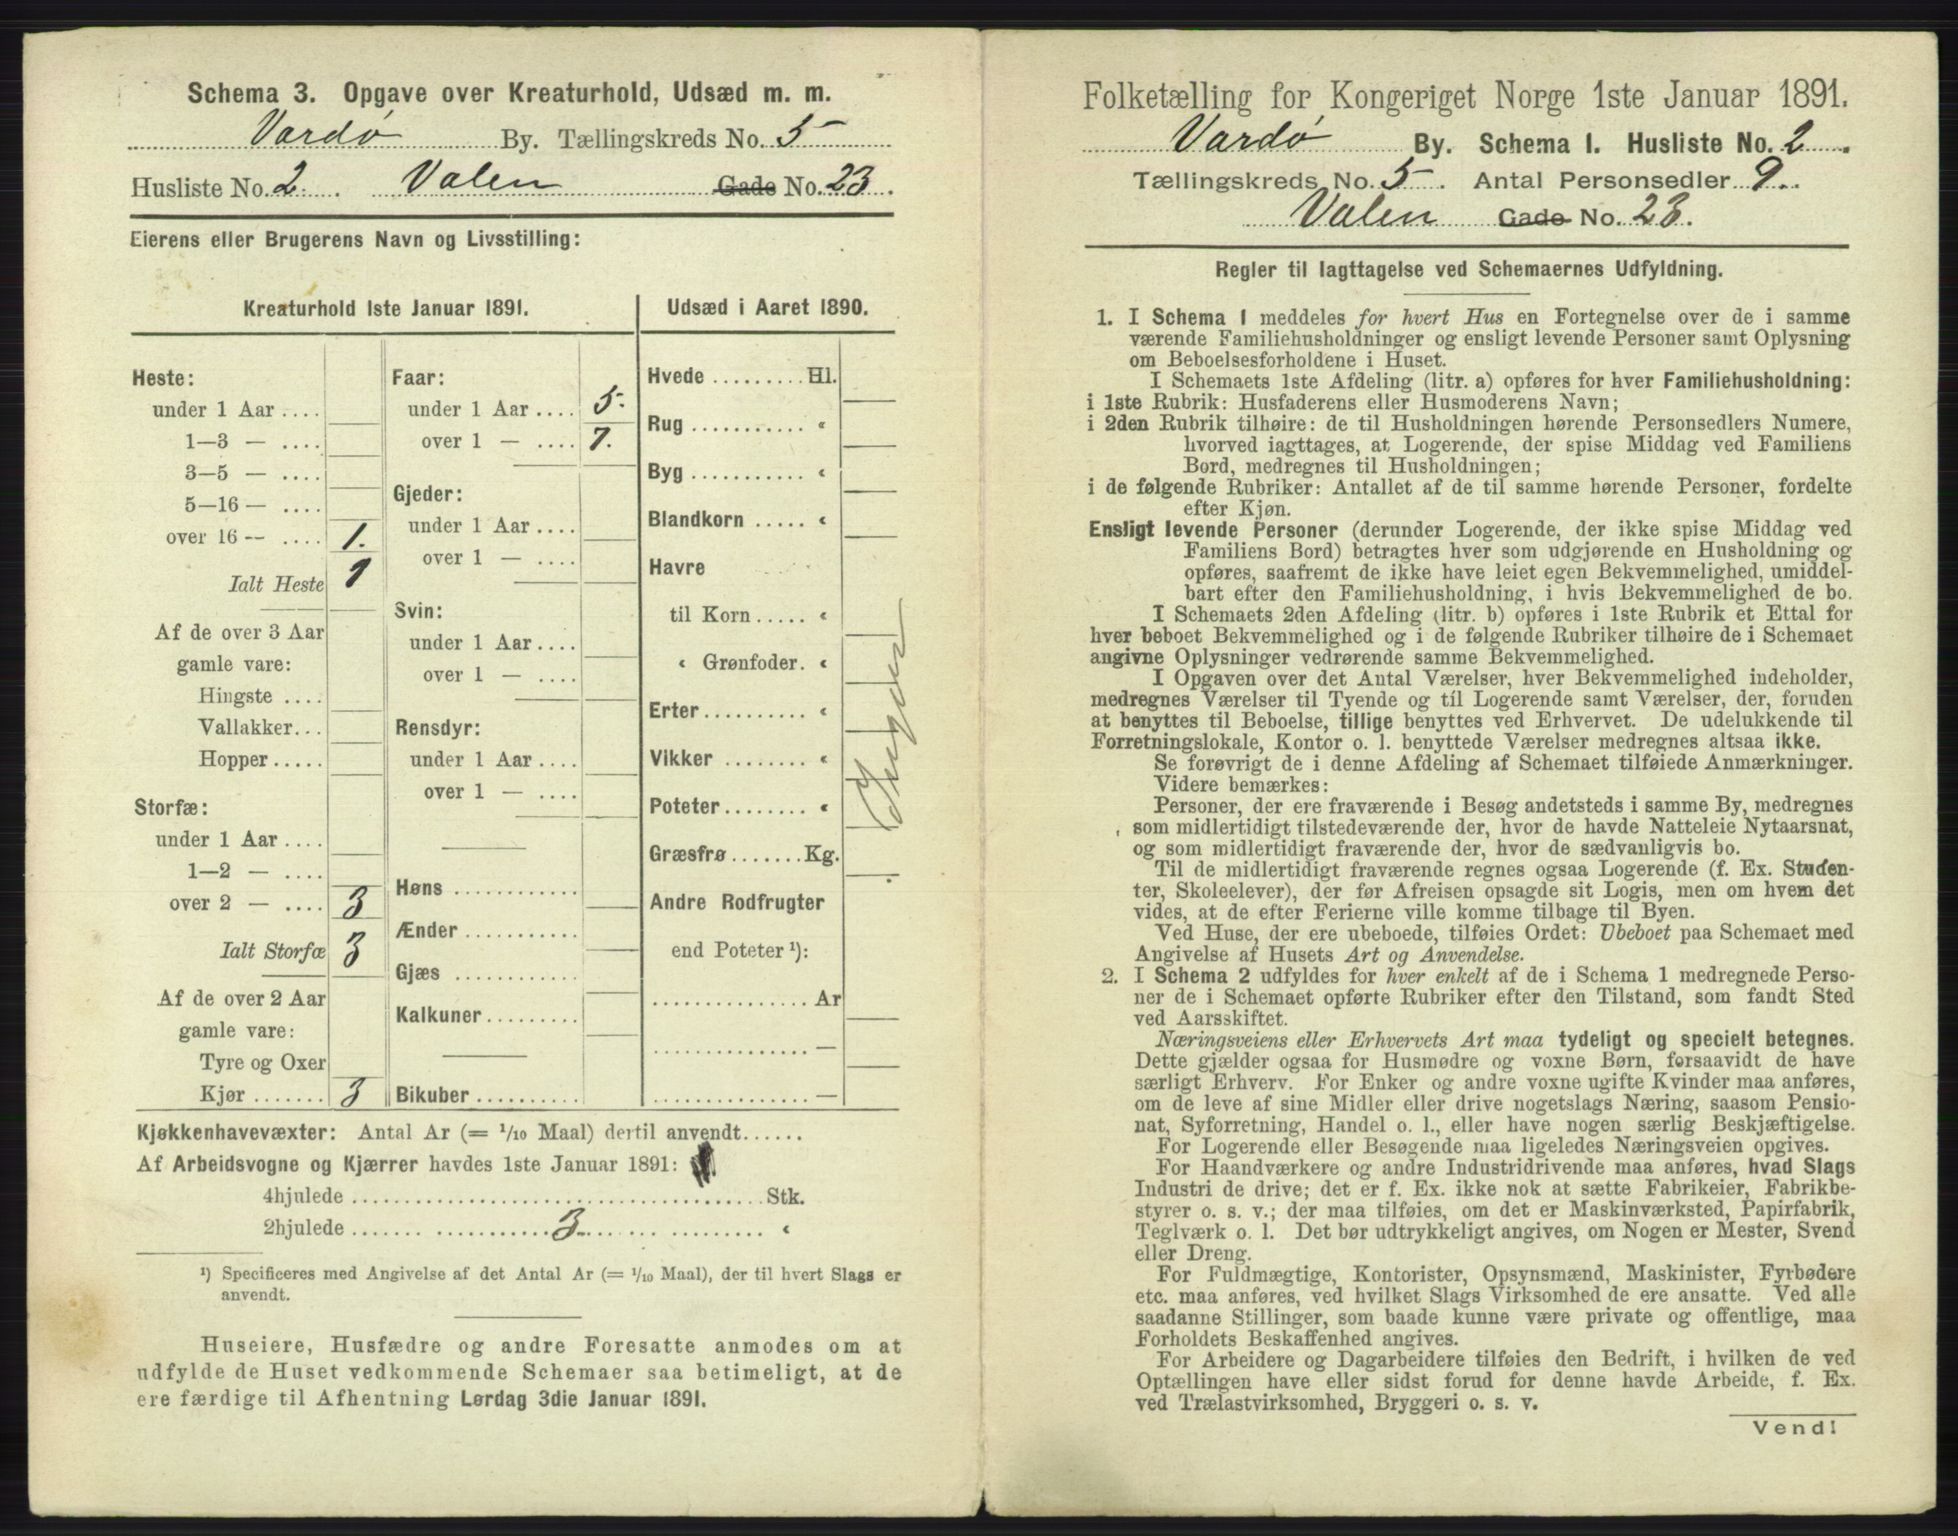 Schema 3. Opgave over Kreaturhold, Udsæd m. m.
Vardø By. Tællingskreds No. 5
Husliste No. 2. Valen Gade No. 23.
Eierens eller Brugerens Navn og Livsstilling:
Kreaturhold 1ste Januar 1891.
Heste:
under 1 Aar ....
1—3 — ....
3—5 — ....
5—16 — ....
over 16 — .... 1.
Ialt Heste 1
Af de over 3 Aar
gamle vare:
Hingste ....
Vallakker...
Hopper.....
Storfæ:
under 1 Aar ....
1—2 — ....
over 2 — .... 3
Ialt Storfæ 3
Af de over 2 Aar
gamle vare:
Tyre og Oxer
Kjør ....... 3
Faar:
under 1 Aar .... 5.
over 1 — .... 7.
Gjeder:
under 1 Aar ....
over 1 — ....
Svin:
under 1 Aar ....
over 1 — ....
Rensdyr:
under 1 Aar ....
over 1 — ....
Høns ...........
Ænder ..........
Gjæs ...........
Kalkuner.........
Bikuber ..........
Udsæd i Aaret 1890.
Hvede ......... Hl.
Rug ........... «
Byg ........... «
Blandkorn ..... «
Havre
til Korn ..... «
« Grønfoder. «
Erter.......... «
Vikker ........ «
Poteter ........ «
Græsfrø ....... Kg.
Andre Rodfrugter
end Poteter ¹):
............... Ar
............... —
............... —
Ingden
Kjøkkenhavevæxter: Antal Ar (= 1/10 Maal) dertil anvendt......
Af Arbeidsvogne og Kjærrer havdes 1ste Januar 1891:
4hjulede ........................................ Stk.
2hjulede ..... ............ 3 ............ «
¹) Specificeres med Angivelse af det Antal Ar (= 1/10 Maal), der til hvert Slags er
anvendt.
Huseiere, Husfædre og andre Foresatte anmodes om at
udfylde de Huset vedkommende Schemaer saa betimeligt, at de
ere færdige til Afhentning Lørdag 3die Januar 1891.
Folketælling for Kongeriget Norge 1ste Januar 1891.
Vardø By. Schema I. Husliste No. 2.
Tællingskreds No. 5. Antal Personsedler 9.
Valen Gade No. 23.
Regler til Iagttagelse ved Schemaernes Udfyldning.
1. I Schema 1 meddeles for hvert Hus en Fortegnelse over de i samme
værende Familiehusholdninger og ensligt levende Personer samt Oplysning
om Beboelsesforholdene i Huset.
I Schemaets 1ste Afdeling (litr. a) opføres for hver Familiehusholdning:
i 1ste Rubrik: Husfaderens eller Husmoderens Navn;
i 2den Rubrik tilhøire: de til Husholdningen hørende Personsedlers Numere,
hvorved iagttages, at Logerende, der spise Middag ved Familiens
Bord, medregnes til Husholdningen;
i de følgende Rubriker: Antallet af de til samme hørende Personer, fordelte
efter Kjøn.
Ensligt levende Personer (derunder Logerende, der ikke spise Middag ved
Familiens Bord) betragtes hver som udgjørende en Husholdning og
opføres, saafremt de ikke have leiet egen Bekvemmelighed, umiddel-
bart efter den Familiehusholdning, i hvis Bekvemmelighed de bo.
I Schemaets 2den Afdeling (litr. b) opføres i 1ste Rubrik et Ettal for
hver beboet Bekvemmelighed og i de følgende Rubriker tilhøire de i Schemaet
angivne Oplysninger vedrørende samme Bekvemmelighed.
I Opgaven over det Antal Værelser, hver Bekvemmelighed indeholder,
medregnes Værelser til Tyende og til Logerende samt Værelser, der, foruden
at benyttes til Beboelse, tillige benyttes ved Erhvervet. De udelukkende til
Forretningslokale, Kontor o. l. benyttede Værelser medregnes altsaa ikke.
Se forøvrigt de i denne Afdeling af Schemaet tilføiede Anmærkninger.
Videre bemærkes:
Personer, der ere fraværende i Besøg andetsteds i samme By, medregnes
som midlertidigt tilstedeværende der, hvor de havde Natteleie Nytaarsnat,
og som midlertidigt fraværende der, hvor de sædvanligvis bo.
Til de midlertidigt fraværende regnes ogsaa Logerende (f. Ex. Studen-
ter, Skoleelever), der før Afreisen opsagde sit Logis, men om hvem det
vides, at de efter Ferierne ville komme tilbage til Byen.
Ved Huse, der ere ubeboede, tilføies Ordet: Ubeboet paa Schemaet med
Angivelse af Husets Art og Anvendelse.
2. I Schema 2 udfyldes for hver enkelt af de i Schema 1 medregnede Perso-
ner de i Schemaet opførte Rubriker efter den Tilstand, som fandt Sted
ved Aarsskiftet.
Næringsveiens eller Erhvervets Art maa tydeligt og specielt betegnes.
Dette gjælder ogsaa for Husmødre og voxne Børn, forsaavidt de have
særligt Erhverv. For Enker og andre voxne ugifte Kvinder maa anføres,
om de leve af sine Midler eller drive nogetslags Næring, saasom Pensio-
nat, Syforretning, Handel o. l., eller have nogen særlig Beskjæftigelse.
For Logerende eller Besøgende maa ligeledes Næringsveien opgives.
For Haandværkere og andre Industridrivende maa anføres, hvad Slags
Industri de drive; det er f. Ex. ikke nok at sætte Fabrikeier, Fabrikbe-
styrer o. s. v.; der maa tilføies, om det er Maskinværksted, Papirfabrik,
Teglværk o. l. Det bør udtrykkeligt angives, om Nogen er Mester, Svend
eller Dreng.
For Fuldmægtige, Kontorister, Opsynsmænd, Maskinister, Fyrbødere
etc. maa anføres, ved hvilket Slags Virksomhed de ere ansatte. Ved alle
saadanne Stillinger, som baade kunne være private og offentlige, maa
Forholdets Beskaffenhed angives.
For Arbeidere og Dagarbeidere tilføies den Bedrift, i hvilken de ved
Optællingen have eller sidst forud for denne havde Arbeide, f. Ex.
ved Trælastvirksomhed, Bryggeri o. s. v.
Vend!